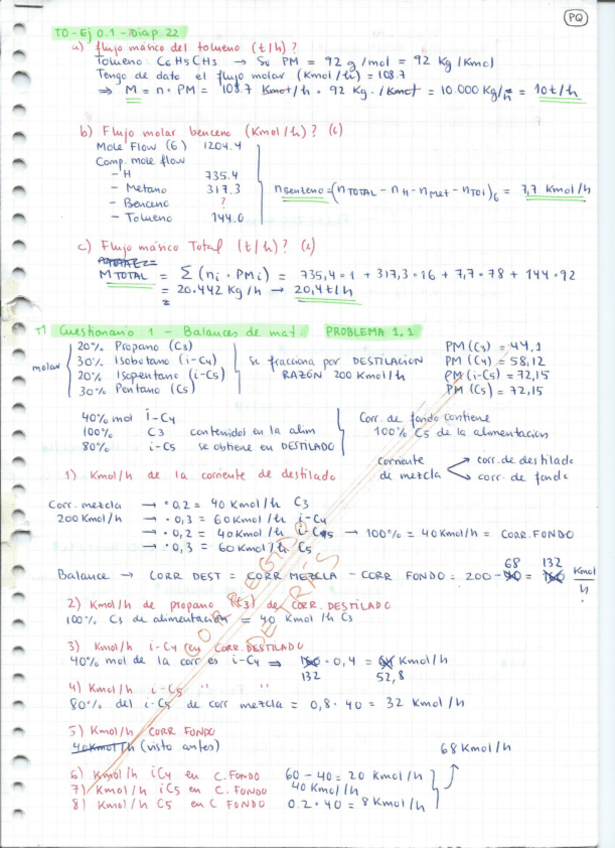 PQ
T0 - Ej 0.1 - Diap. 22
a) flujo másico del tolueno (t/h)?
Tolueno: C6H5CH3 → Su PM = 92 g/mol = 92 Kg/Kmol
Tengo de dato el flujo molar (Kmol/h) = 108.7
⇒ M = n · PM = 108.7 Kmol/h · 92 Kg/Kmol = 10.000 Kg/h = 10 t/h
b) Flujo molar benceno (Kmol/h)? (6)
Mole Flow (6) 1204.4
Comp. mole flow
- H 735.4
- Metano 317.3
- Benceno ?
- Tolueno 144.0
n benceno = (n TOTAL - n H - n Met - n Tol)6 = 7,7 Kmol/h
c) Flujo másico Total (t/h)? (6)
M TOTAL = Σ (ni · PMi) = 735,4 · 1 + 317,3 · 16 + 7,7 · 78 + 144 · 92
= 20.442 Kg/h → 20,4 t/h
T1 Cuestionario 1 - Balances de mat. PROBLEMA 1.1
molar
20% Propano (C3)
30% Isobutano (i-C4)
20% Isopentano (i-C5)
30% Pentano (C5)
se fracciona por DESTILACIÓN
RAZÓN 200 Kmol/h
PM (C3) = 44,1
PM (C4) = 58,12
PM (i-C5) = 72,15
PM (C5) = 72,15
40% mol i-C4
100% C3 contenidos en la alim
80% i-C5 se obtiene en DESTILADO
Corr. de fondo contiene
100% C5 de la alimentación
corriente de mezcla
corr. de destilado
corr. de fondo
1) Kmol/h de la corriente de destilado
Corr. mezcla → · 0,2 = 40 Kmol/h C3
200 Kmol/h → · 0,3 = 60 Kmol/h i-C4
→ · 0,2 = 40 Kmol/h i-C5 → 100% = 40 Kmol/h = CORR. FONDO
→ · 0,3 = 60 Kmol/h C5
68 132
Balance → CORR DEST = CORR MEZCLA - CORR FONDO = 200 - 40 = 160 Kmol/h
2) Kmol/h de propano (C3) de CORR. DESTILADO
100% C3 de alimentación = 40 Kmol/h C3
3) Kmol/h i-C4 en CORR. DESTILADO
40% mol de la corr es i-C4 ⇒ 160 · 0,4 = 64 Kmol/h
132 52,8
4) Kmol/h i-C5 " "
80% del i-C5 de corr mezcla = 0,8 · 40 = 32 Kmol/h
5) Kmol/h CORR FONDO
40 Kmol/h (visto antes) 68 Kmol/h
6) Kmol/h iC4 en C. FONDO 60 - 40 = 20 Kmol/h
7) Kmol/h iC5 en C. FONDO 40 Kmol/h
8) Kmol/h C5 en C FONDO 0.2 · 40 = 8 Kmol/h
CORREGIDO
DETRÁS